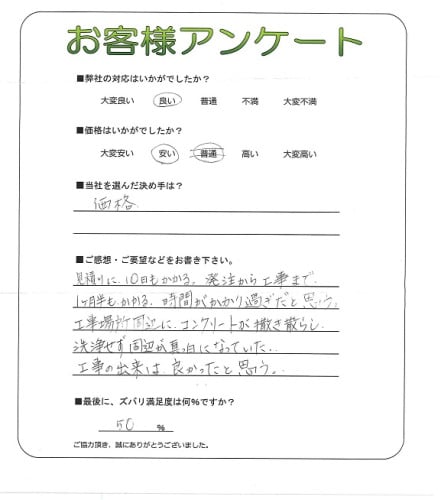 お客様アンケート
■弊社の対応はいかがでしたか？
大変良い 良い 普通 不満 大変不満
■価格はいかがでしたか？
大変安い 安い 普通 高い 大変高い
■当社を選んだ決め手は？
価格
■ご感想・ご要望などをお書き下さい。
見積りに、10日もかかる。発注から工事まで、
1ヶ月半もかかる。時間がかかり過ぎだと思う。
工事場所周辺に、コンクリートが撒き散らし
洗浄せず周辺が真っ白になっていた。
工事の出来は良かったと思う。
■最後に、ズバリ満足度は何%ですか？
50 %
ご協力頂き、誠にありがとうございました。